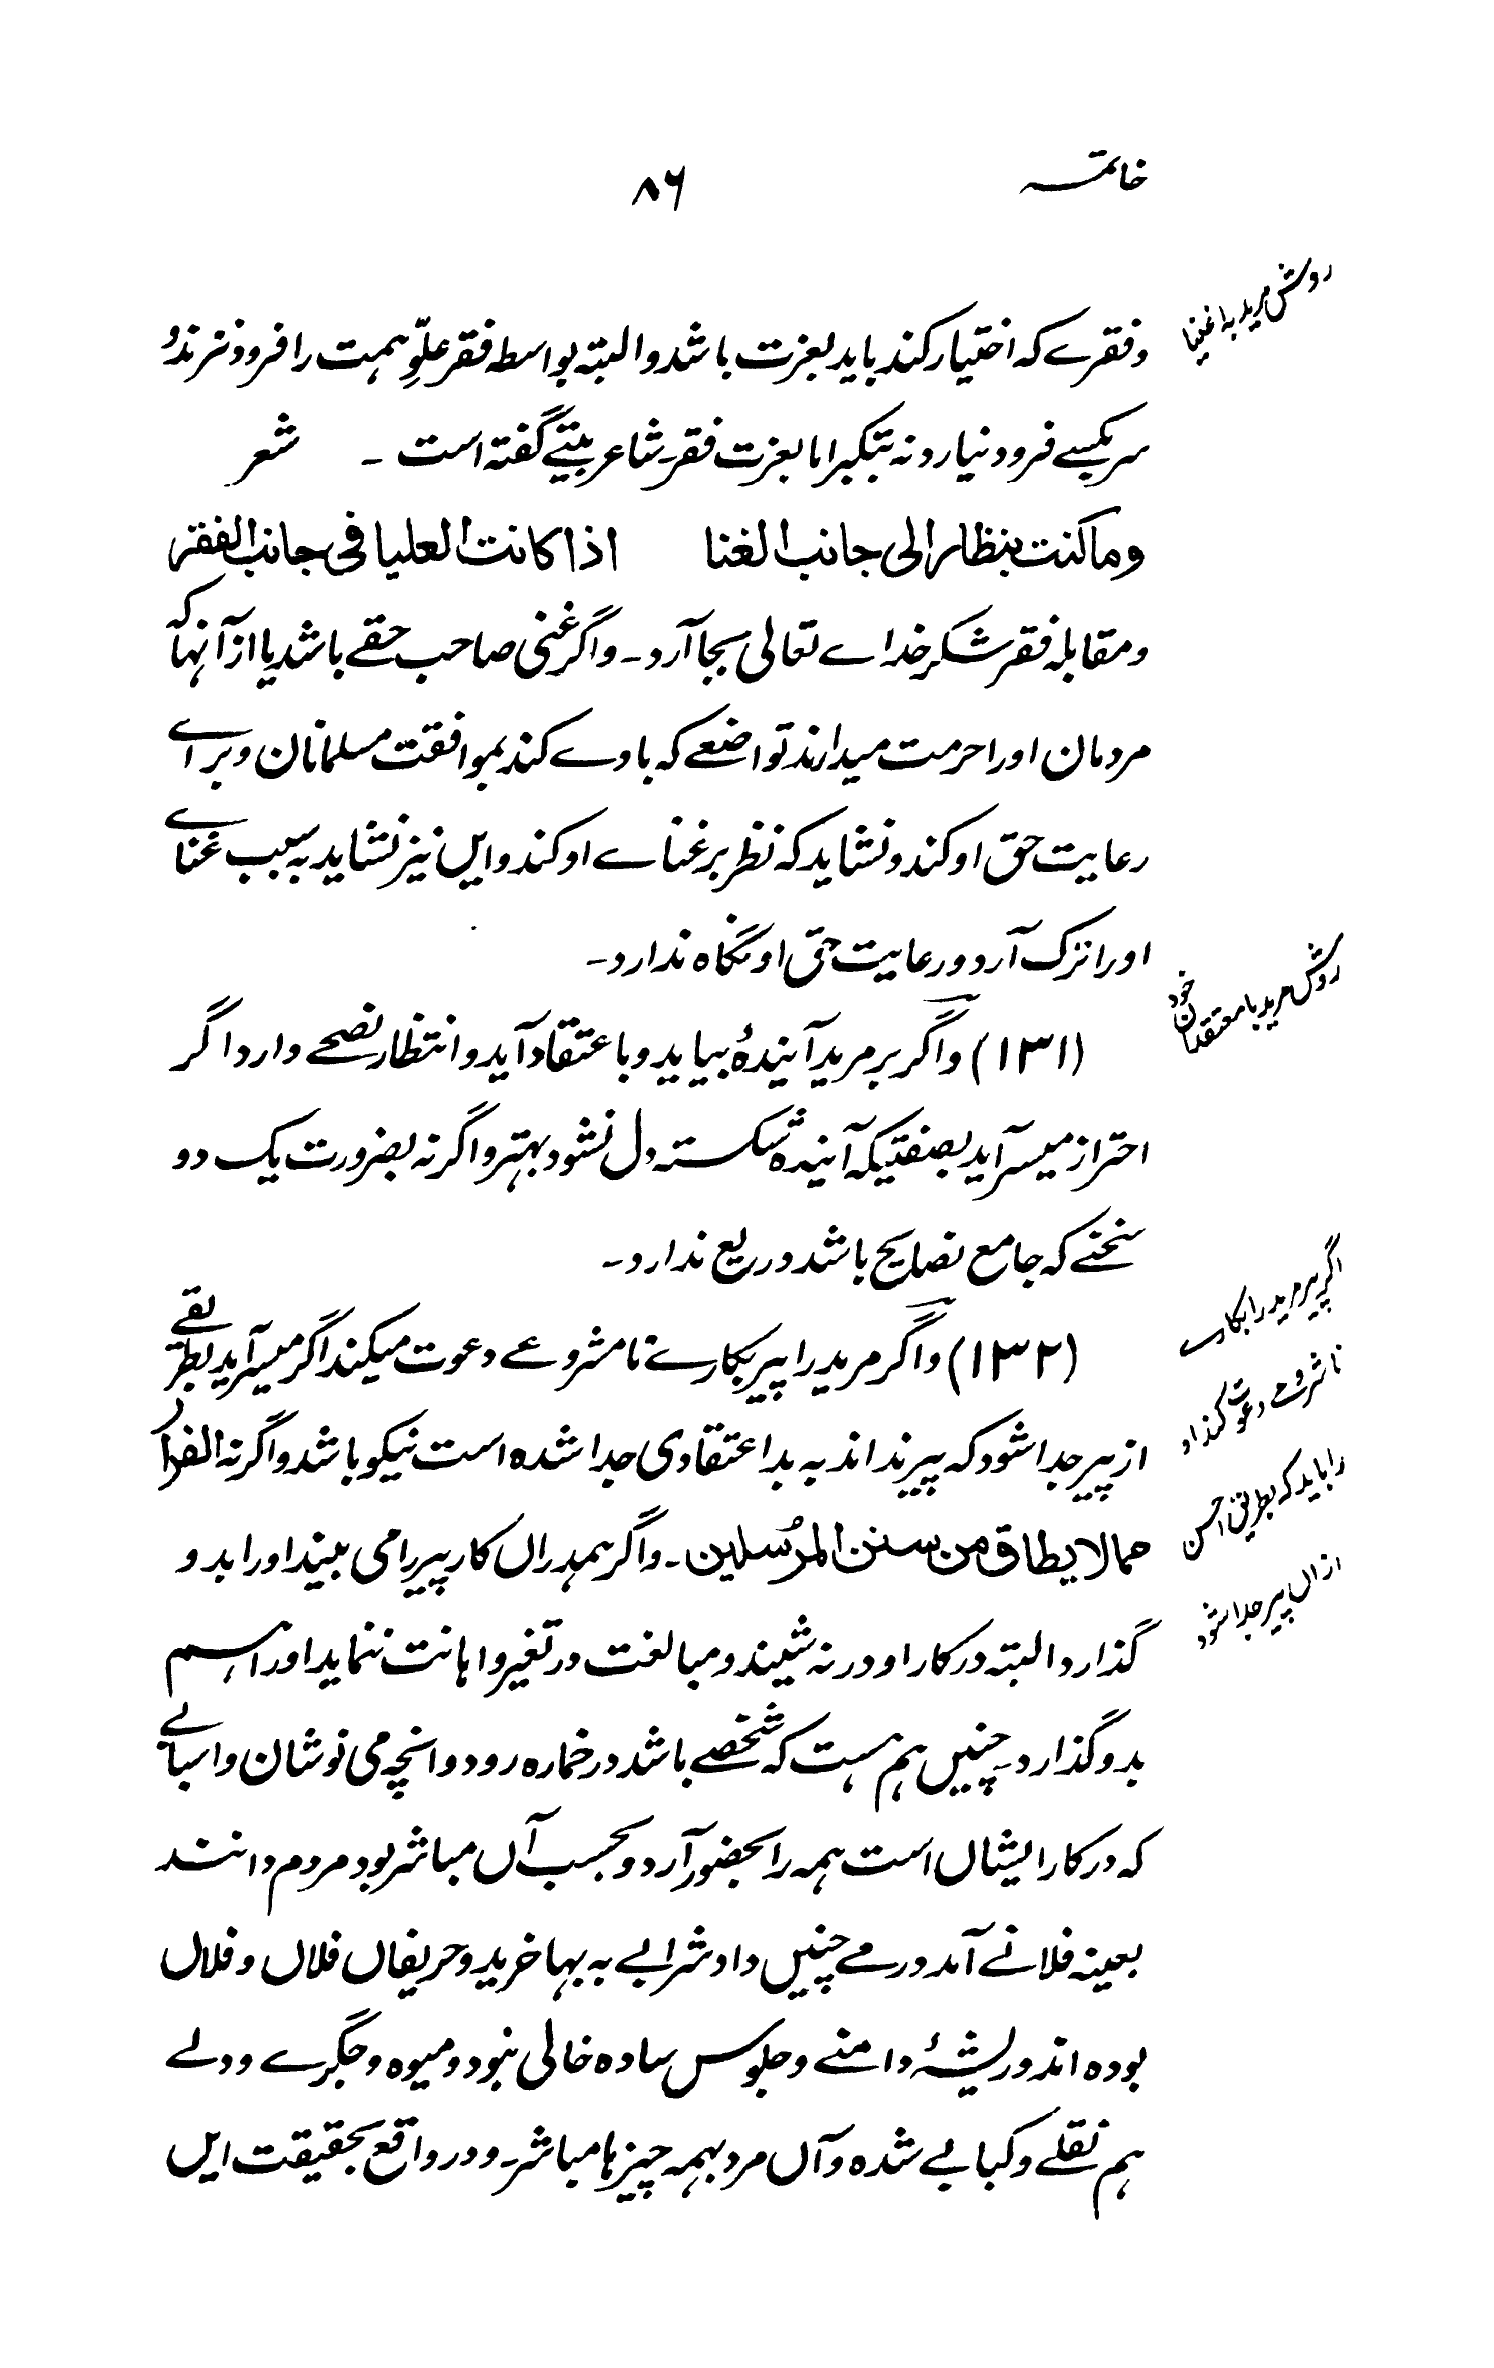 خاتمہ
۸۶
روش مرید با غنیا
و فقرے کہ اختیار کند باید بعزت باشد و البتہ بواسطہ فقر علوِّ ہمت را فرود نزند و
سر بکسے فرود نیارد نہ بتکبر اما بعزت فقر۔ شاعر بیتے گفتہ است ۔ شعر
وما کنت بنظار الی جانب الغنا اذا کانت العلیا فی جانب الفقر
و مقابلہ فقر شکر خداے تعالی بجا آرد۔ واگر غنی صاحب حقے باشد یا از آنہا کہ
مردمان او را حرمت میدارند تواضعے کہ باوے کند بموافقت مسلمانان و براے
رعایت حق او کند و نشاید کہ نظر بر غناے او کند و ایں نیز نشاید بہ سبب غناے
او را ترک آرد و رعایت حق او نگاہ ندارد۔
روش مرید با معتقدان خود
(۱۳۱) واگر بر مرید آیندۂ بیاید و با عتقاد آید و انتظار نصحے دارد اگر
احتراز میسر آید بصفتیکہ آیندہ شکستہ دل نشود بہتر و اگر نہ بضرورت یک دو
سخنے کہ جامع نصایح باشد دریغ ندارد۔
اگر پیر مرید را بکارے
نامشروعے دعوت کند او
را باید کہ بطریق احسن
ازاں پیر جدا شود
(۱۳۲) واگر مرید را پیر بکارے نامشروعے دعوت میکند اگر میسر آید بطریقے
از پیر جدا شود کہ پیر نداند بہ بد اعتقادی جدا شدہ است نیکو باشد و اگر نہ الفرار
مما لا یطاق من سنن المرُسلین۔ واگر ہمدراں کار پیر را می بیند او را بدو
گذارد البتہ در کار او در نہ شیند و مبالغت در تغیر و اہانت ننماید او را ہم
بدو گذارد۔ چنیں ہم ہست کہ شخصے باشد در خمارہ رود و انچہ می نوشان و اسبابے
کہ در کار ایشاں است ہمہ را بحضور آرد و بحسب آں مباشر بود مردم دانند
بعینہ فلانے آمد درمے چنیں داد شرابے بہ بہا خرید و حریفاں فلاں و فلاں
بودہ اند و ریشۂ دامنے و جلوس سادہ خالی نبود و میوہ و جگرے و دلے
ہم نقلے و کبابے شدہ و آں مرد بہمہ چیزہا مباشر۔ و در واقع بحقیقت ایں